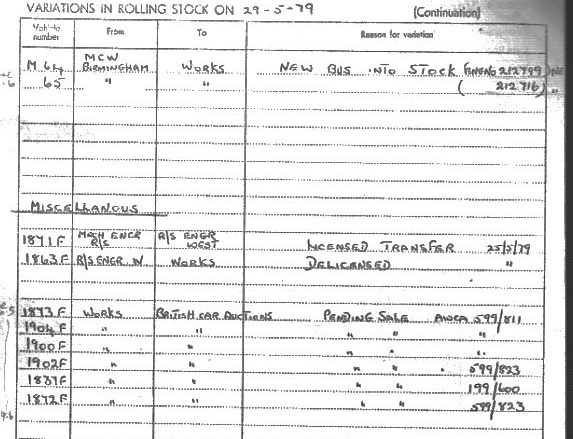 VARIATIONS IN ROLLING STOCK ON 29-5-79 (Continuation)
Vehicle number From To Reason for variation
M 64 MCW BIRMINGHAM WORKS NEW BUS INTO STOCK (ENGNO 212799)
65 " " ( 212716) "
MISCELLANOUS
1871F MECH ENGR R/S R/S ENGR WEST LICENSED TRANSFER 25/5/79
1863F R/S ENGR W WORKS DELICENSED "
1873F WORKS BRITISH CAR AUCTIONS PENDING SALE AWCA 599/811
1904F " " " " "
1900F " " " " "
1902F " " " " " 599/823
1837F " " " " 199/600
1872F " " " " 599/823